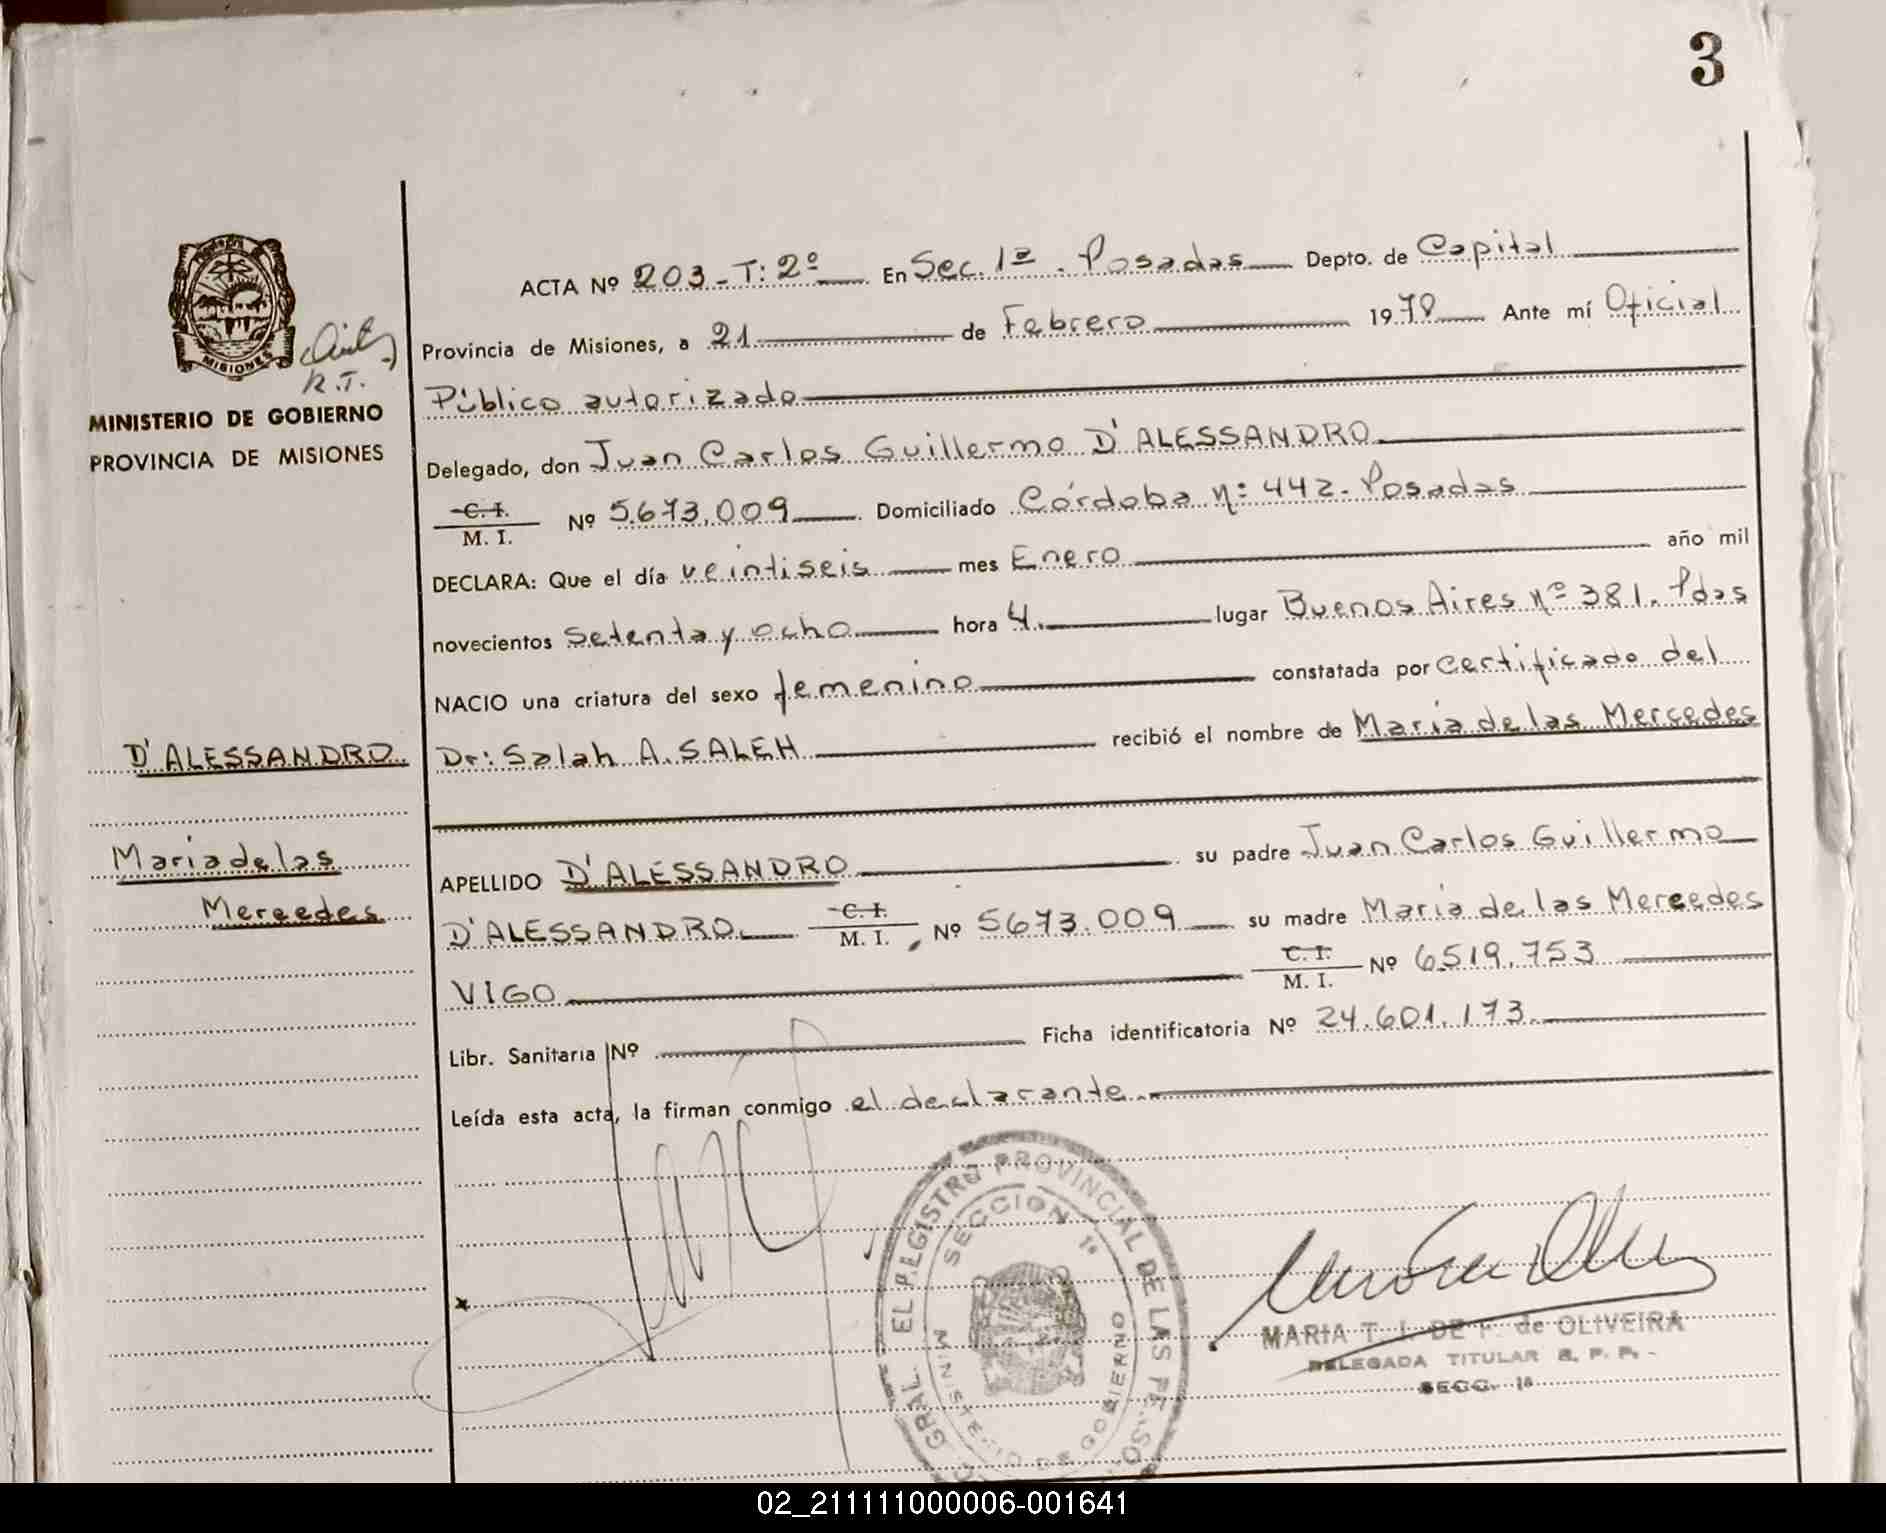 3
ACTA Nº 203 - T: 2º En Sec. 1ª. Posadas Depto. de Capital
Provincia de Misiones, a 21 de Febrero 1978 Ante mí Oficial
Público autorizado
Delegado, don Juan Carlos Guillermo D'ALESSANDRO
C. I.
M. I.
Nº 5.673.009 Domiciliado Córdoba Nº 442 - Posadas
DECLARA: Que el día veintiseis mes Enero año mil
novecientos setenta y ocho hora 4. lugar Buenos Aires nº 381. Pdas
NACIO una criatura del sexo femenino constatada por certificado del
Dr: Salah A. SALEH recibió el nombre de María de las Mercedes
APELLIDO D'ALESSANDRO su padre Juan Carlos Guillermo
D'ALESSANDRO C. I. M. I. Nº 5673.009 su madre María de las Mercedes
VIGO C. I. M. I. Nº 6.519.753
Libr. Sanitaria Nº Ficha identificatoria Nº 24.601.173.
Leída esta acta, la firman conmigo el declarante
MISIONES
R.T.
MINISTERIO DE GOBIERNO
PROVINCIA DE MISIONES
D'ALESSANDRO
María de las
Mercedes
REGISTRO PROVINCIAL DE LAS
SECCION 1ª
MINISTERIO DE GOBIERNO
GRAL.
MARIA T. I. DE F. de OLIVEIRA
DELEGADA TITULAR R. P. P. -
SECC. 1ª
02_211111000006-001641